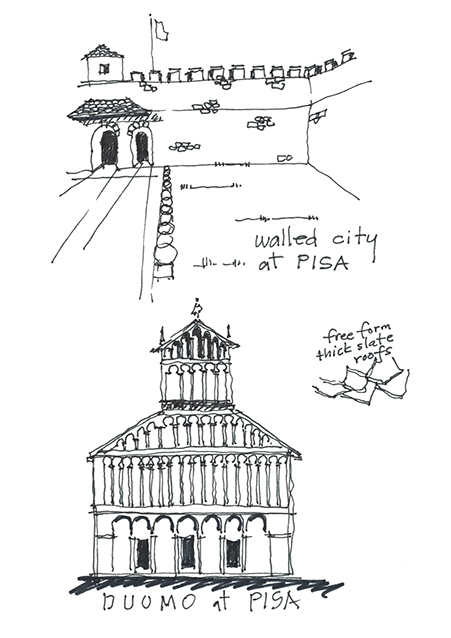 walled city
at PISA
free form
thick slate
roofs
DUOMO at PISA